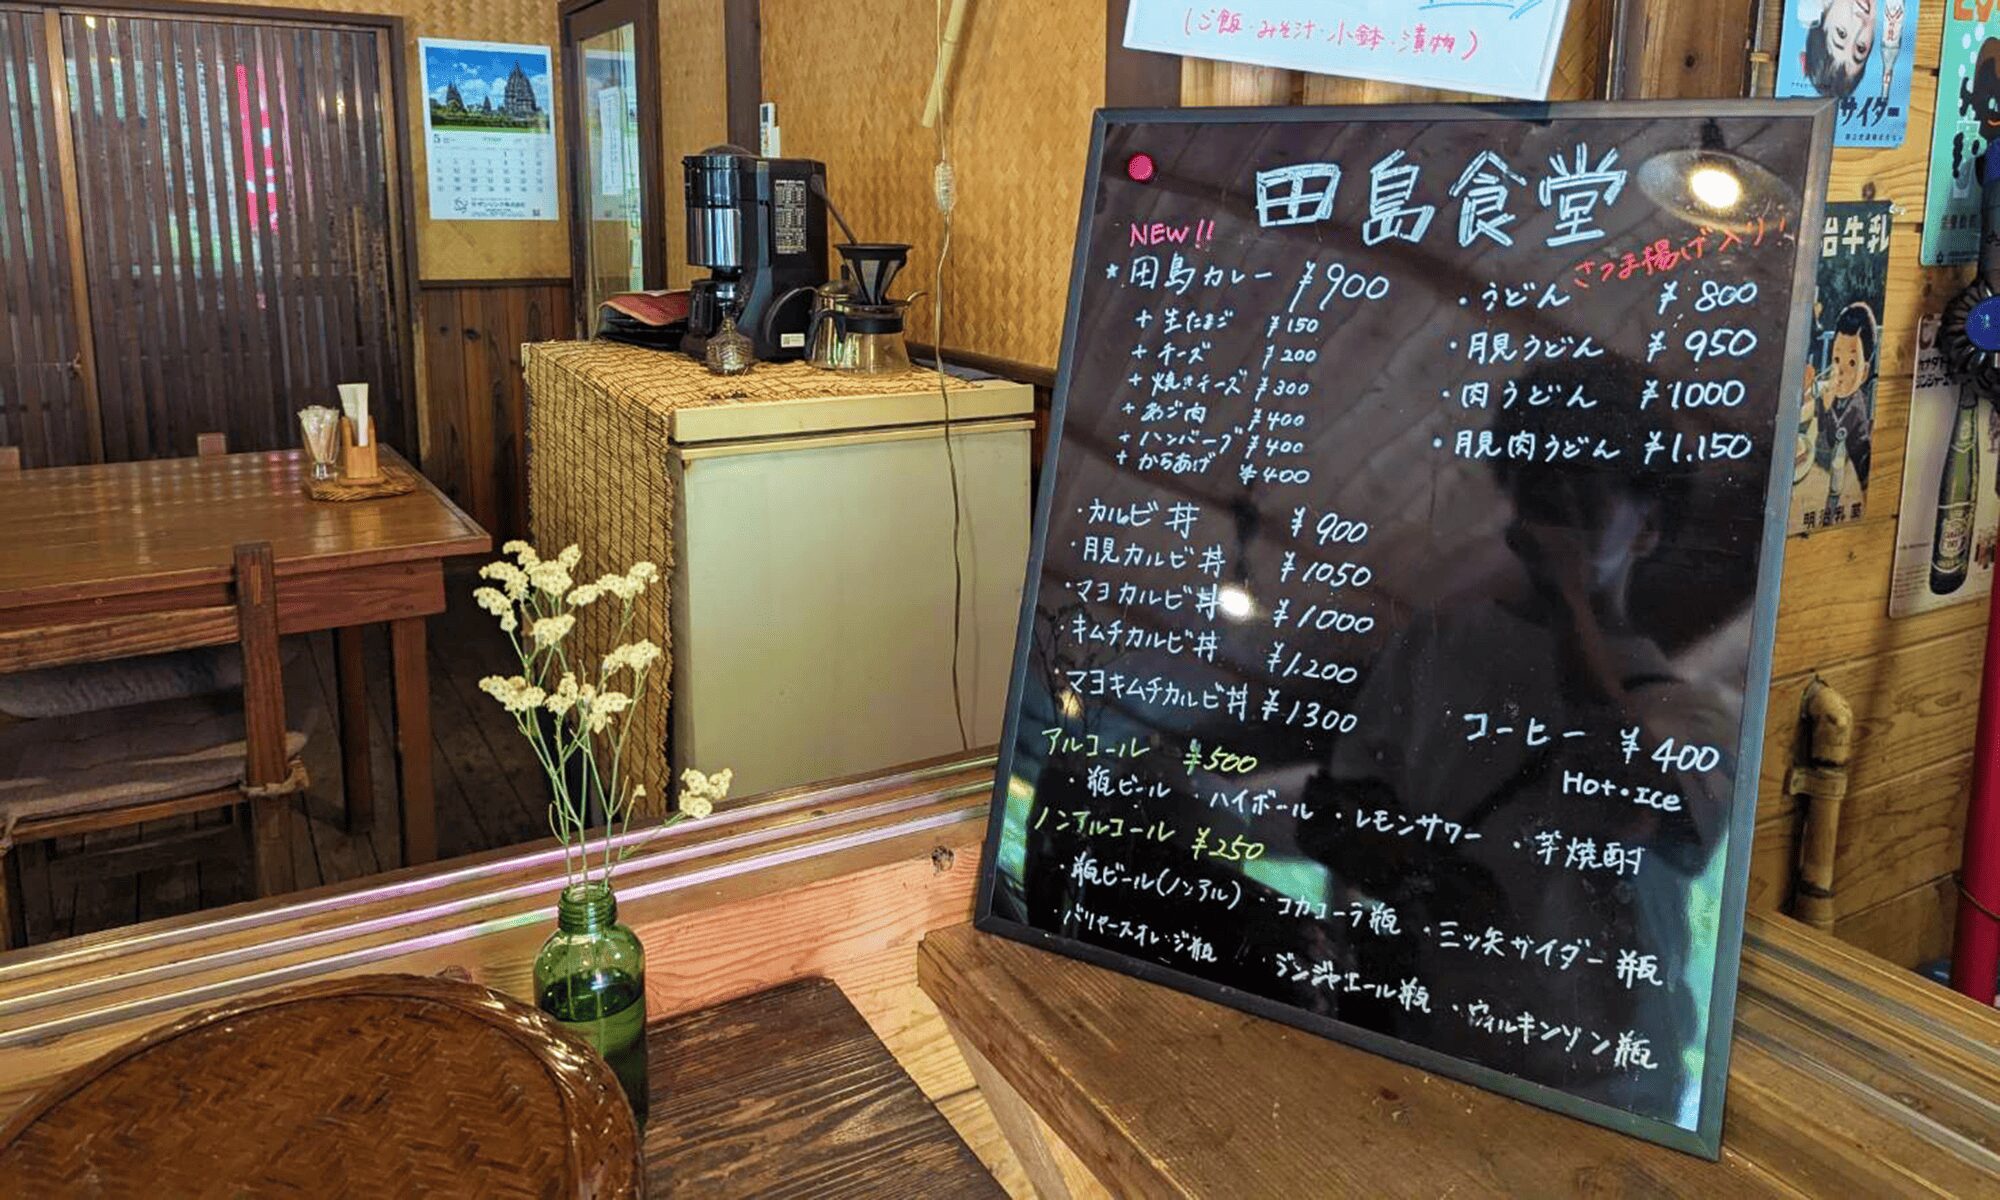 (ご飯・みそ汁・小鉢・漬物)
田島食堂
NEW!!
★田島カレー ¥900
+生たまご ¥150
+チーズ ¥200
+焼きチーズ ¥300
+あご肉 ¥400
+ハンバーグ ¥400
+からあげ ¥400
さつま揚げ入り!
・うどん ¥800
・月見うどん ¥950
・肉うどん ¥1000
・月見肉うどん ¥1,150
・カルビ丼 ¥900
・月見カルビ丼 ¥1050
・マヨカルビ丼 ¥1000
・キムチカルビ丼 ¥1.200
・マヨキムチカルビ丼 ¥1300
コーヒー ¥400
Hot・Ice
アルコール ¥500
・瓶ビール ・ハイボール ・レモンサワー ・芋焼酎
ノンアルコール ¥250
・瓶ビール(ノンアル) ・コカコーラ瓶 ・三ツ矢サイダー瓶
・バヤリースオレンジ瓶 ・ジンジャエール瓶 ・ウィルキンソン瓶
サイダー
治牛乳
明治乳業
5